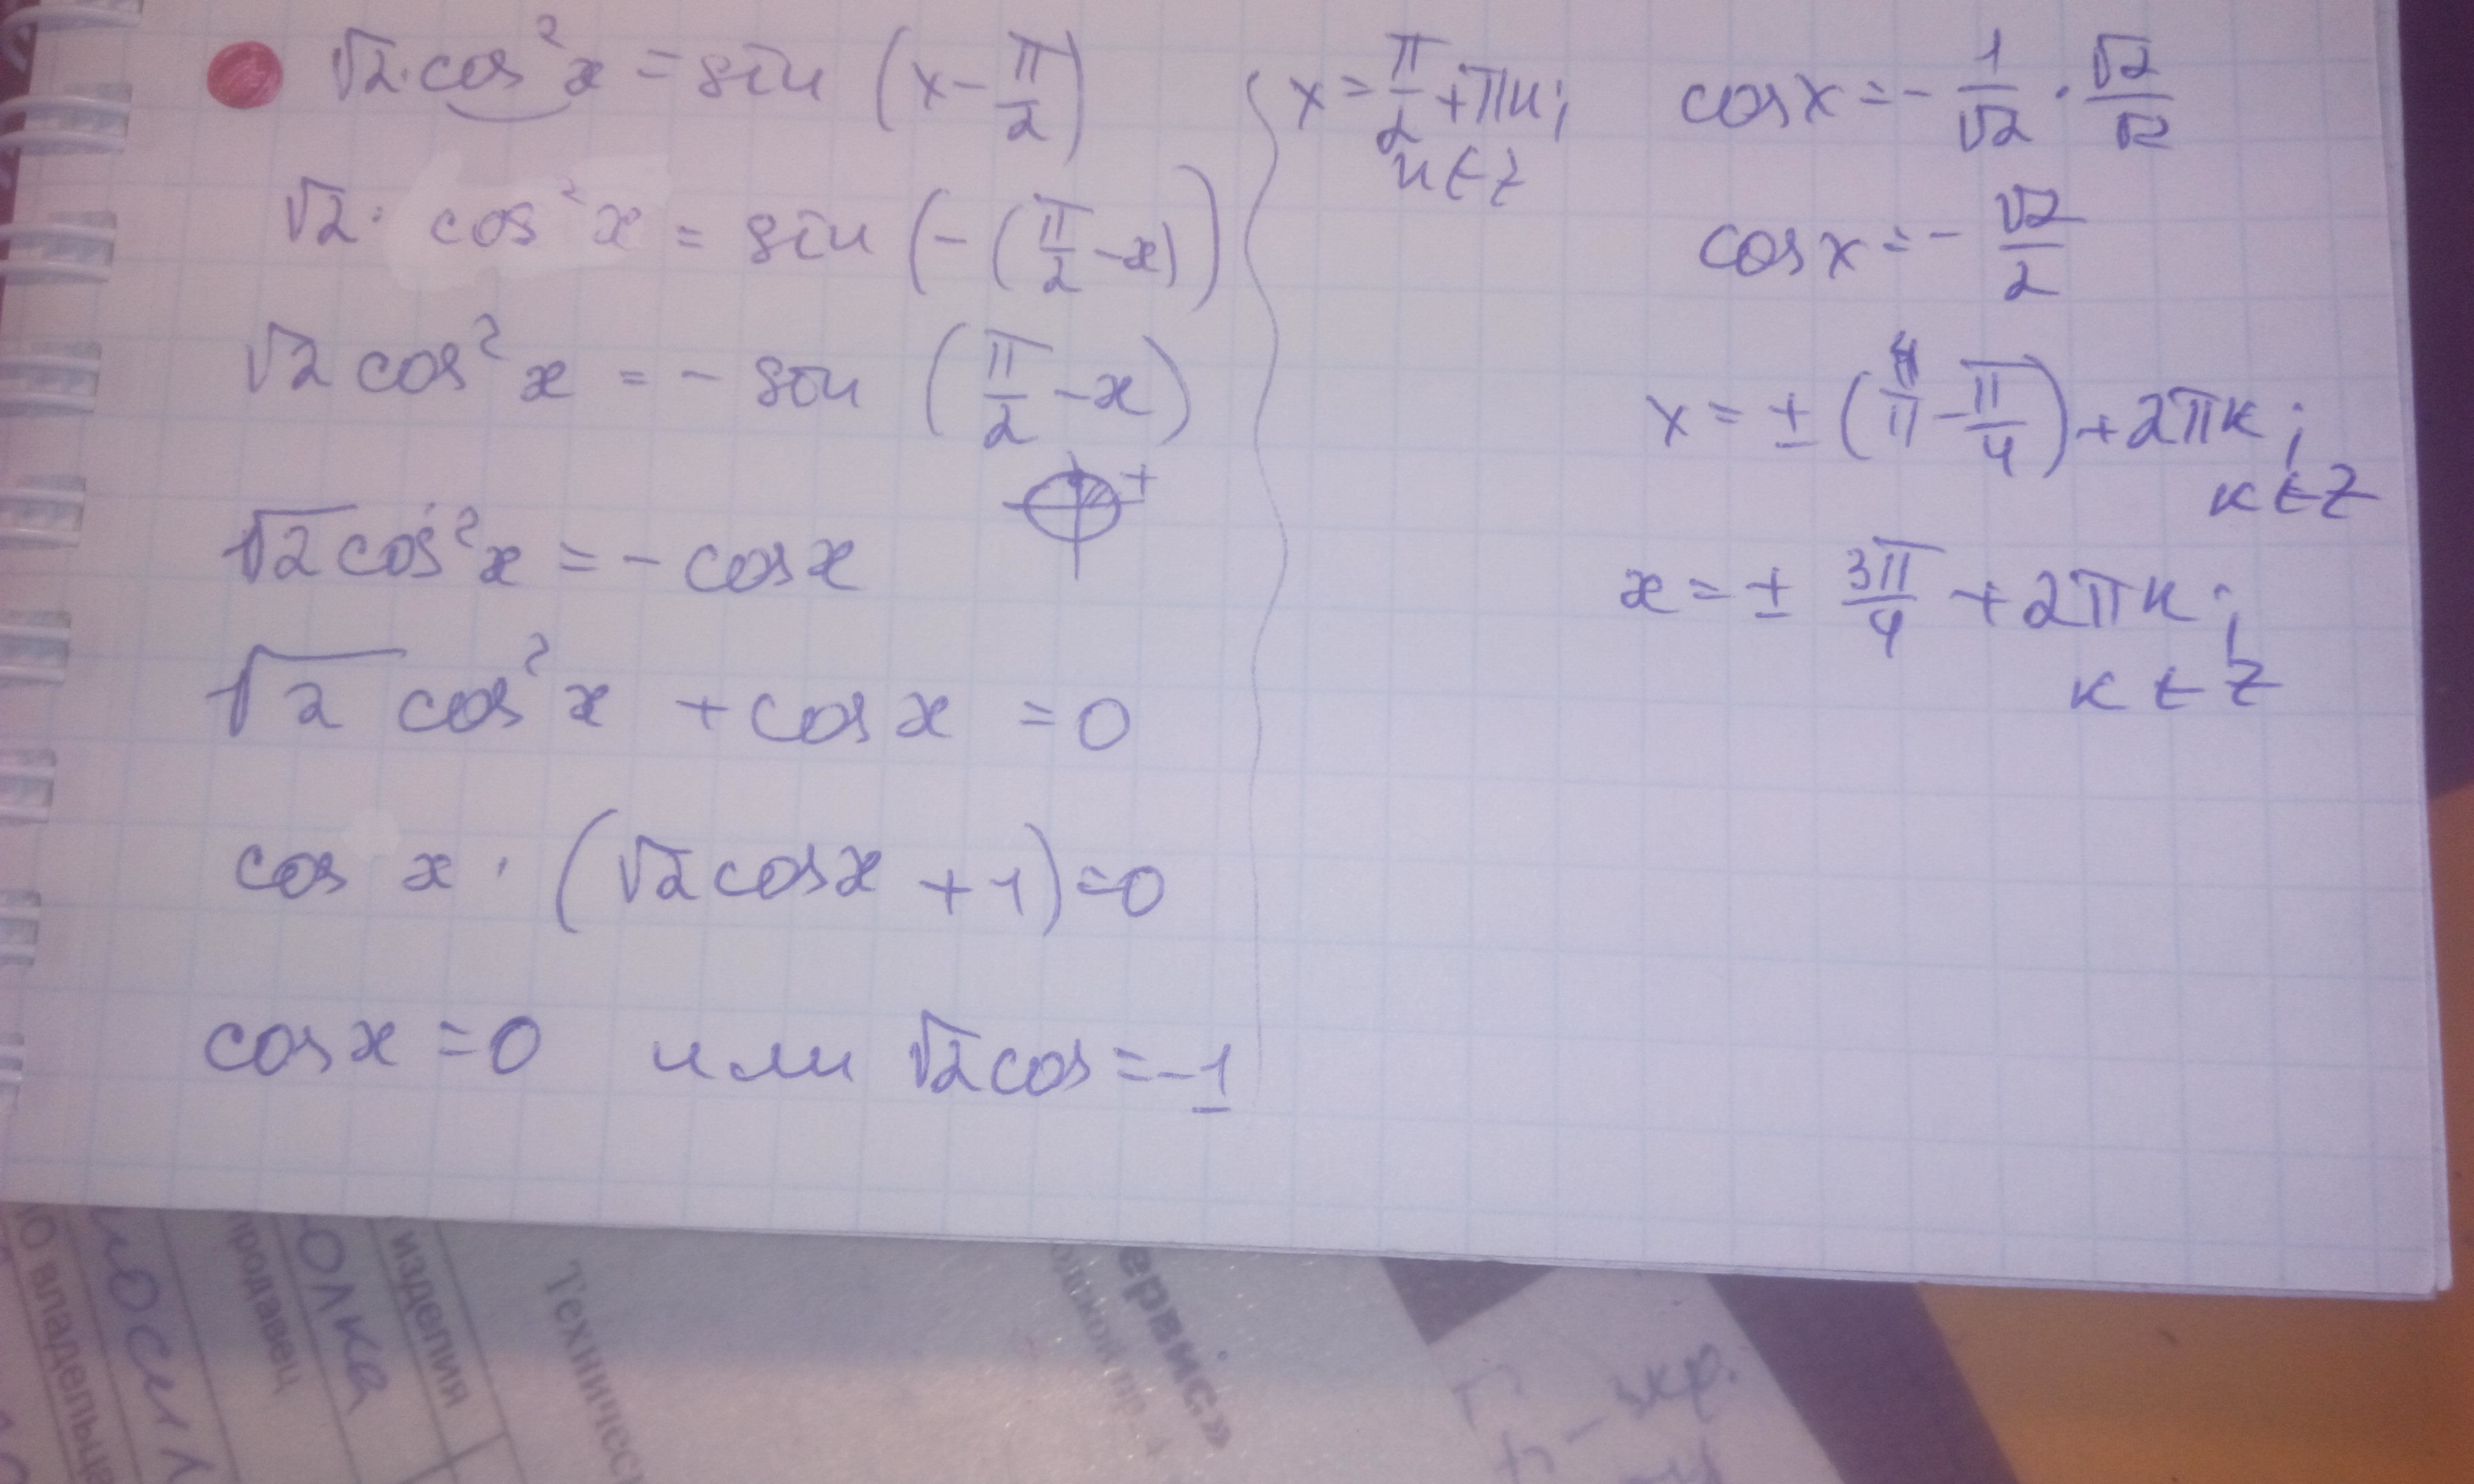 √2·cos²x = sin (x - π/2)
√2· cos²x = sin (-(π/2 - x))
√2 cos²x = - sin (π/2 - x)
+
√2 cos²x = - cosx
√2 cos²x + cosx = 0
cos x · (√2cosx + 1) = 0
cosx = 0 или √2cos = -1
x = π/2 + πk;
k ∈ Z
cosx = - 1/√2 · √2/√2
cosx = - √2/2
x = ± (π - π/4) + 2πk;
k ∈ Z
x = ± 3π/4 + 2πk;
k ∈ Z
владельца
продавец
олка
изделия
Техничес
ервис»